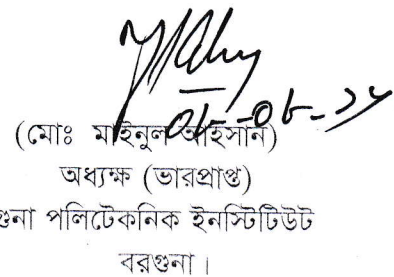 (মোঃ মাইনুল আহসান)
অধ্যক্ষ (ভারপ্রাপ্ত)
গুনা পলিটেকনিক ইনস্টিটিউট
বরগুনা।